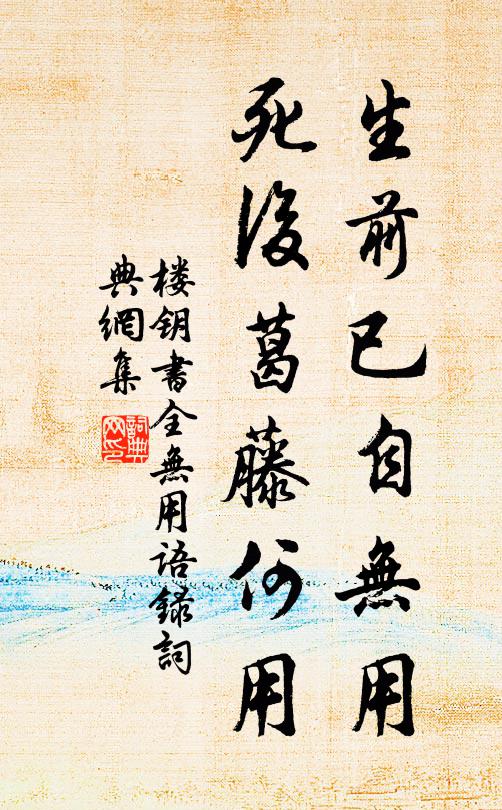 生前已自無用
死後葛藤何用
楼钥書全無用語録詞
典網集
詞典
网印